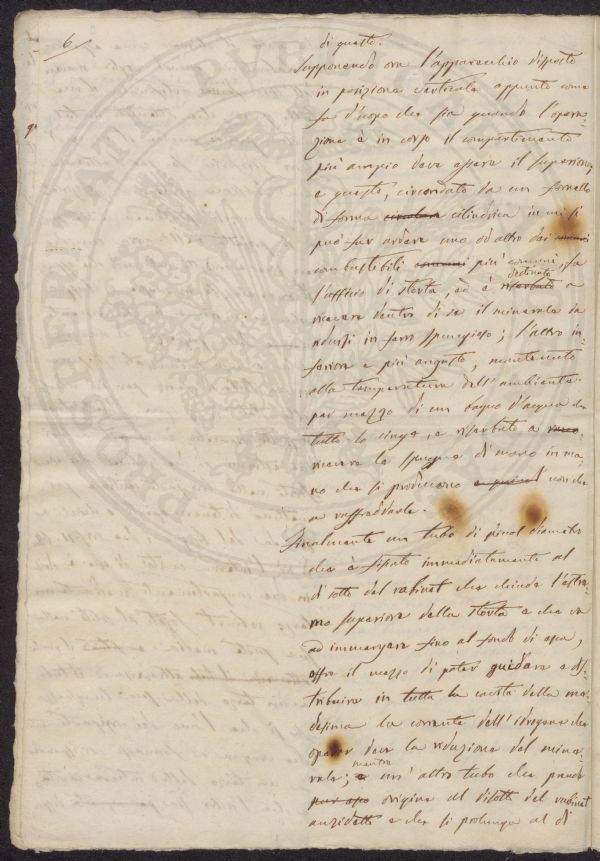 6
di questo.
Supponendo ora l'apparecchio disposto
in posizione verticale appunto come
fa d'uopo che sia quando l'opera-
zione è in corso il compartimento
più ampio deve essere il superiore,
e questo, circondato da un fornello
di forma circolare cilindrica in cui si
può far ardere uno od altro dei comuni
combustibili comuni più comuni, fa
l'ufficio di storta, ed è riserbato destinato a
ricevere dentro di se il minerale da
ridursi in ferro spugnoso; l'altro in-
feriore e più angusto, mantenuto
alla temperatura dell'ambiente
per mezzo di un bagno d'acqua che
tutto lo cinge, è riserbato a
ricevere le spugne di mano in ma-
no che si producono onde
a raffreddarle.
Finalmente un tubo di piccol diametro
che è fissato immediatamente al
di sotto del robinet che chiude l'estre-
mo superiore della storta e che va
ad immergersi fino al fondo di essa,
offre il mezzo di poter guidare e di-
stribuire in tutta la cavità della me-
desima la corrente dell'idrogeno che
operar deve la riduzione del mine-
rale; e mentre un'altro tubo che prende
pur esso origine al disotto del robinet
anzidetto e che si prolunga al di